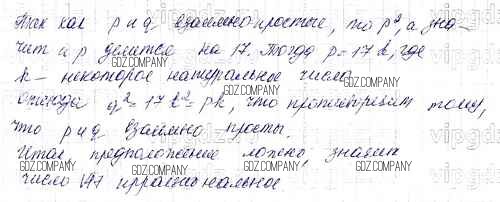 Так как p и q взаимно простые, то p², а зна-
чит и p делится на 17. Тогда p = 17k, где
k – некоторое натуральное число
отсюда q² = 17k² = pk, что противоречит тому,
что p и q взаимно просты.
Итак, предположение ложно, значит
число √17 иррациональное.
GDZ.COMPANY
vipgdz